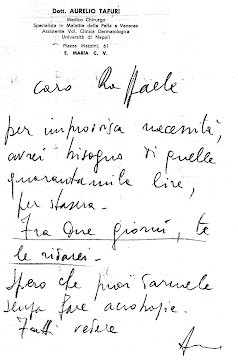 Dott. AURELIO TAFURI
Medico Chirurgo
Specialista in Malattie della Pelle e Veneree
Assistente Vol. Clinica Dermatologica
Università di Napoli
Piazza Mazzini, 61
S. MARIA C. V.
caro Raffaele
per improvvisa necessità,
avrei bisogno di quelle
quarantamila lire,
per stasera.
Fra due giorni, te
le ridarei.
Spero che puoi darmele
senza fare acrobazie.
Fatti vedere